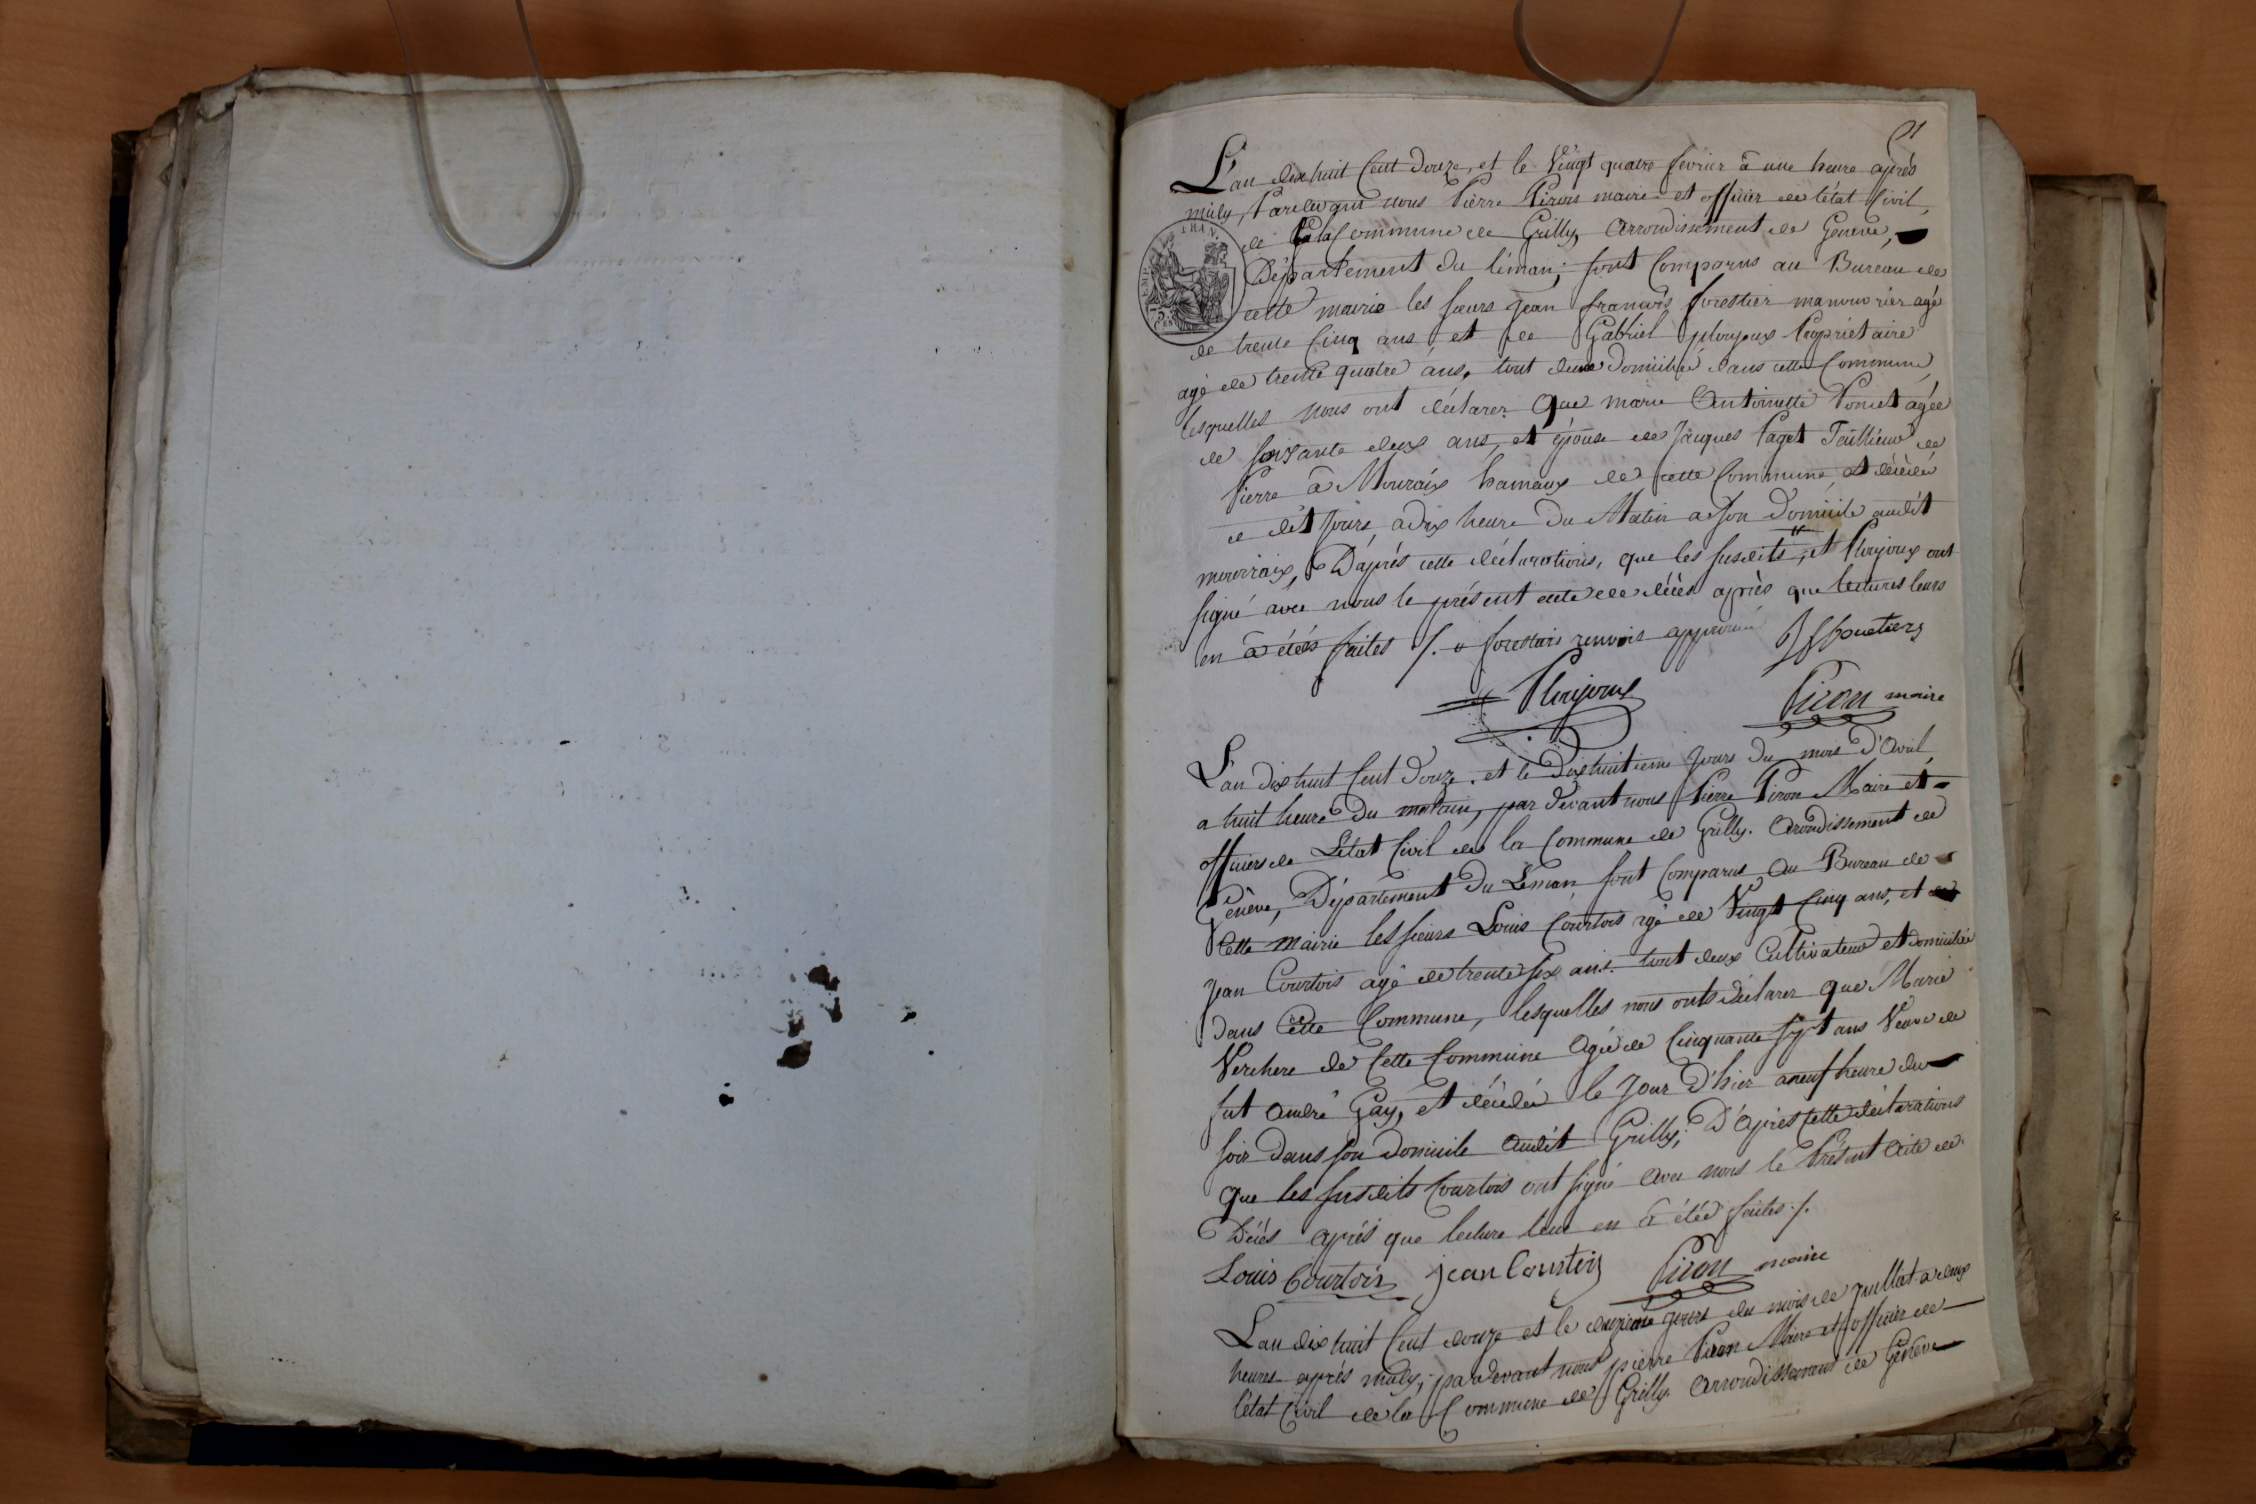 L'an dix huit Cent Douze, et le Vingt quatre fevrier à une heure après
midy, Pardevant nous Pierre Piron maire et officier de l'état Civil,
de la Commune de Grilly, Arrondissement de Genève,
EMP FRAN.
75 CEN
Département du léman; sont Comparus au Bureau de
cette mairie les sieurs Jean francois forestier manouvrier agé
de trente Cinq ans, et de Gabriel ploujoux Propriétaire
agé de trente quatre ans, tout deux Domicilié dans cette Commune,
lesquelles nous ont déclarer que marie Antoinette Poncet agée
de soixante deux ans, et épouse de Jacques Paget Taillieur de
Pierre à Mouraix hamaux de cette Commune, et décédée
ce dit jours, a dix heure Du Matin a son Domicile audit
mourraix, D'après cette déclarations, que les susdits, et Ploujoux ont
signé avec nous le présent acte de décès après que lectures leurs
en à étées faites /. forestier renvois approuvé
Ploujoux
Piron maire
L'an Dix huit Cent Douze, et le Dix huitieme jours Du mois D'Avril,
a huit heure Du matain, par Devant nous Pierre Piron Maire et
officiers de L'état Civil de la Commune de Grilly. Arondissement de
Génève, Département Du Léman sont Comparus Au Bureau de
Cette mairie les sieurs Louis Courtois agé de Vingt Cinq ans, et
Jean Courtois agé de trente six ans. tout deux Cultivateur et domiciliée
Dans Cette Commune, lesquelles nous onts déclarer que Marie
Verchere de Cette Commune Agée de Cinquante sept ans Veuve de
fut André Gay, et décédée le Jour D'hier a neuf heure du
soir Dans son Domicile Audit Grilly; D'après Cette déclarations
que les susdits Courtois ont signé Avec nous le Présent Acte de
Décès après que lecture leur en à étée faites /.
Louis Courtois Jean Courtois Piron maire
L'an dix huit Cent douze et le jours du mois de juillet a deux
heures après midy, par devant nous pierre Piron Maire et officier de
l'état Civil de la Commune de Grilly. Arrondissement de Genève